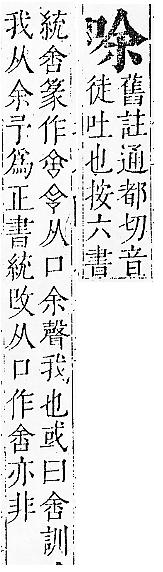 㖠舊註通都切音
徒吐也按六書
統舍篆作舍㒰从口余聲我也或曰舍訓
我从余予爲正書統改从口作舍亦非